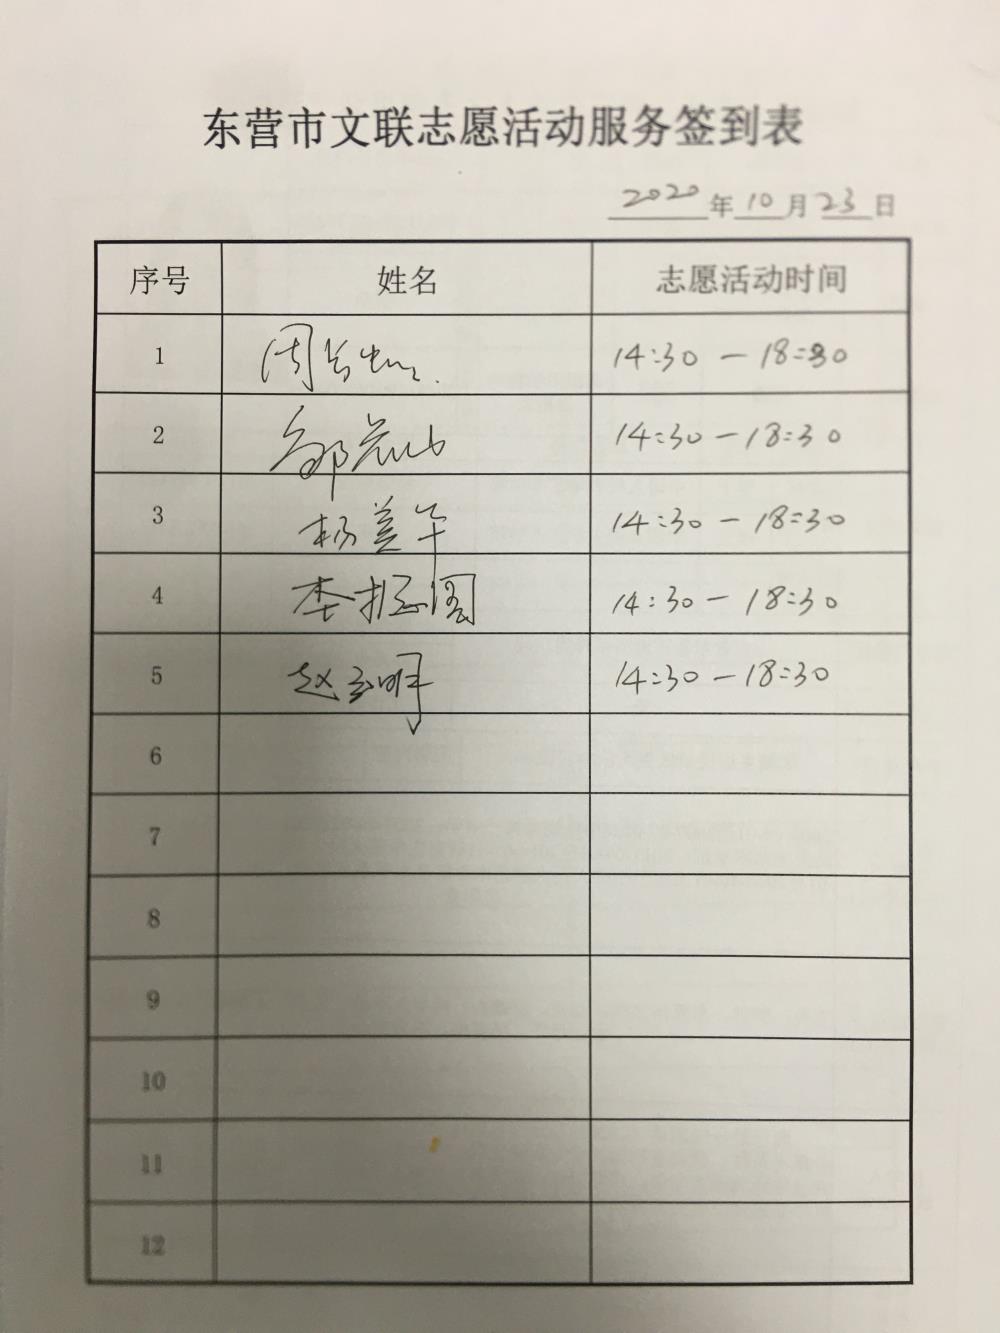 东营市文联志愿活动服务签到表
2020年10月23日
序号 姓名 志愿活动时间
1 周 14:30 — 18:30
2 邹 14:30 — 18:30
3 杨美华 14:30 — 18:30
4 李振国 14:30 — 18:30
5 赵玉明 14:30 — 18:30
6
7
8
9
10
11
12